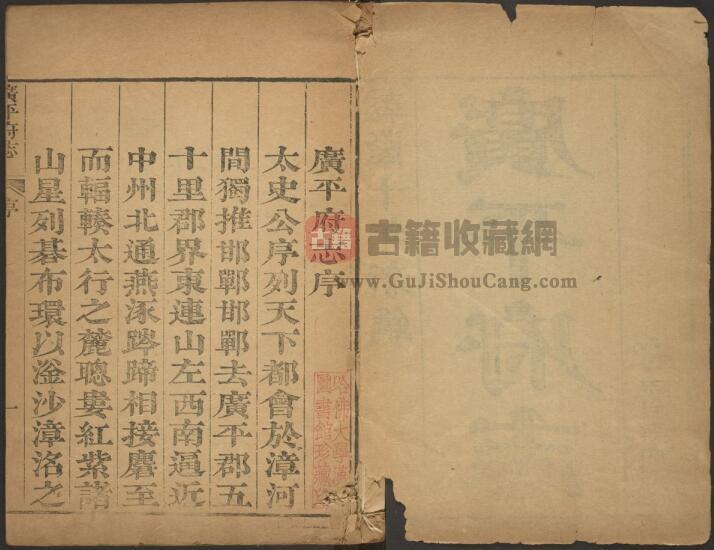 廣平府志序
太史公序列天下都會於漳河
間獨推邯鄲邯鄲去廣平郡五
十里郡界東連山左西南逼近
中州北通燕涿踤蹄相接麕至
而輻輳太行之麓聰婁紅紫諸
山星列碁布環以滏沙漳洺之
廣平府志
序
一
古籍
古籍收藏網
www.GuJiShouCang.com